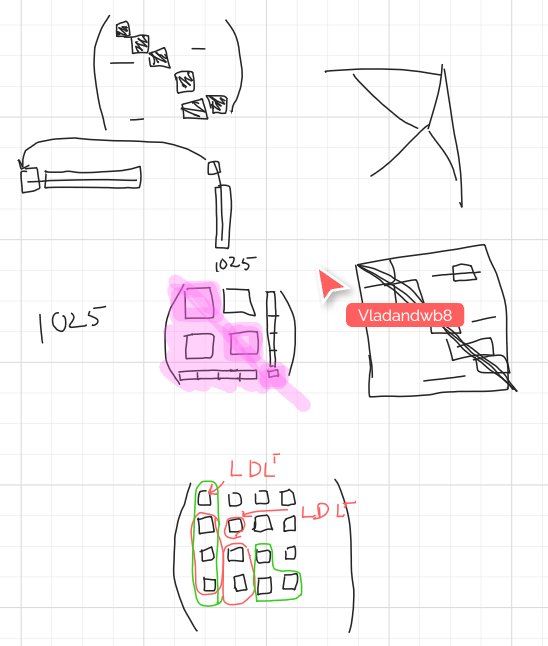 1025
1025
Vladandwb8
LDLᵀ
LDLᵀ